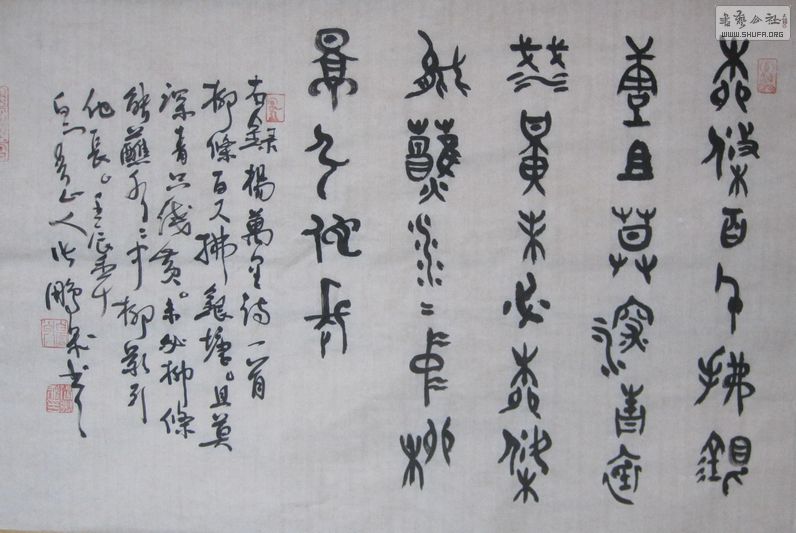 柳條百尺拂銀
塘且莫深青只
淺黃未必柳條
能蘸水〻中柳
影引他長
右錄楊萬里詩一首
柳條百尺拂銀塘。且莫
深青只淺黃。未必柳條
能蘸水〻中柳影引
他長。壬辰
山人張鵬書
書藝公社
WWW.SHUFA.ORG